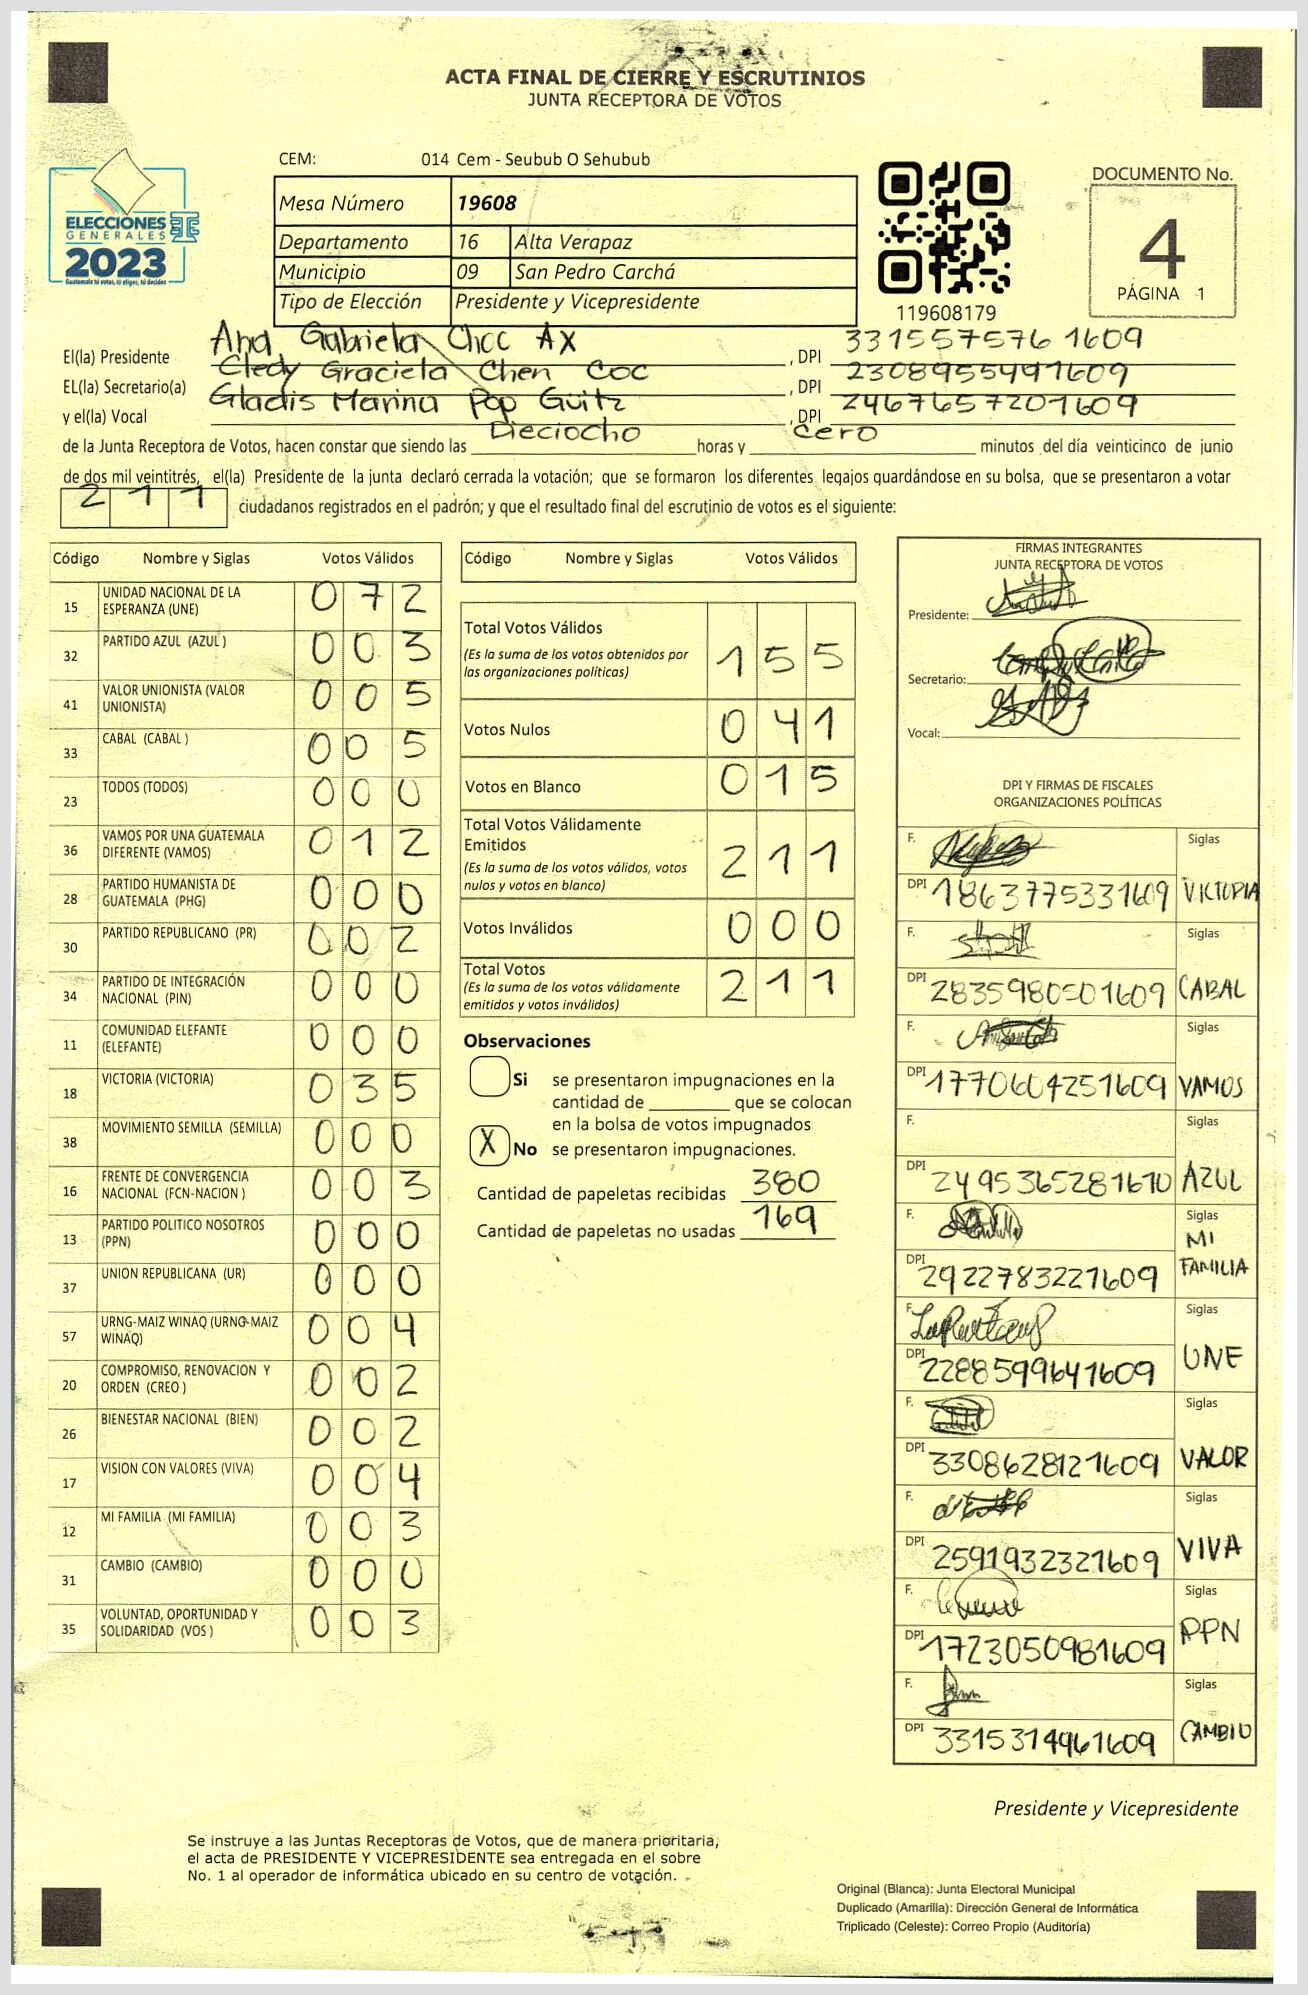 ACTA FINAL DE CIERRE Y ESCRUTINIOS
JUNTA RECEPTORA DE VOTOS
CEM: 014 Cem - Seubub O Sehubub
ELECCIONES
GENERALES
2023
Guatemala tú votas, tú eliges, tú decides
Mesa Número 19608
Departamento 16 Alta Verapaz
Municipio 09 San Pedro Carchá
Tipo de Elección Presidente y Vicepresidente
119608179
DOCUMENTO No.
4
PÁGINA 1
El(la) Presidente Ana Gabriela Choc Ax , DPI 331557576 1609
EL(la) Secretario(a) Cledy Graciela Chen Coc , DPI 2308955491609
y el(la) Vocal Gladis Marina Pop Güitz , DPI 2467657201609
de la Junta Receptora de Votos, hacen constar que siendo las Dieciocho horas y cero minutos del día veinticinco de junio
de dos mil veintitrés, el(la) Presidente de la junta declaró cerrada la votación; que se formaron los diferentes legajos guardándose en su bolsa, que se presentaron a votar
211 ciudadanos registrados en el padrón; y que el resultado final del escrutinio de votos es el siguiente:
Código Nombre y Siglas Votos Válidos
15 UNIDAD NACIONAL DE LA ESPERANZA (UNE) 072
32 PARTIDO AZUL (AZUL ) 003
41 VALOR UNIONISTA (VALOR UNIONISTA) 005
33 CABAL (CABAL ) 005
23 TODOS (TODOS) 000
36 VAMOS POR UNA GUATEMALA DIFERENTE (VAMOS) 012
28 PARTIDO HUMANISTA DE GUATEMALA (PHG) 000
30 PARTIDO REPUBLICANO (PR) 002
34 PARTIDO DE INTEGRACIÓN NACIONAL (PIN) 000
11 COMUNIDAD ELEFANTE (ELEFANTE) 000
18 VICTORIA (VICTORIA) 035
38 MOVIMIENTO SEMILLA (SEMILLA) 000
16 FRENTE DE CONVERGENCIA NACIONAL (FCN-NACION ) 003
13 PARTIDO POLITICO NOSOTROS (PPN) 000
37 UNION REPUBLICANA (UR) 000
57 URNG-MAIZ WINAQ (URNG-MAIZ WINAQ) 004
20 COMPROMISO, RENOVACION Y ORDEN (CREO ) 002
26 BIENESTAR NACIONAL (BIEN) 002
17 VISION CON VALORES (VIVA) 004
12 MI FAMILIA (MI FAMILIA) 003
31 CAMBIO (CAMBIO) 000
35 VOLUNTAD, OPORTUNIDAD Y SOLIDARIDAD (VOS ) 003
Código Nombre y Siglas Votos Válidos
Total Votos Válidos 155
(Es la suma de los votos obtenidos por
las organizaciones políticas)
Votos Nulos 041
Votos en Blanco 015
Total Votos Válidamente
Emitidos 211
(Es la suma de los votos válidos, votos
nulos y votos en blanco)
Votos Inválidos 000
Total Votos 211
(Es la suma de los votos válidamente
emitidos y votos inválidos)
Observaciones
Si se presentaron impugnaciones en la
cantidad de ________ que se colocan
en la bolsa de votos impugnados
X No se presentaron impugnaciones.
Cantidad de papeletas recibidas 380
Cantidad de papeletas no usadas 169
FIRMAS INTEGRANTES
JUNTA RECEPTORA DE VOTOS
Presidente:
Secretario:
Vocal:
DPI Y FIRMAS DE FISCALES
ORGANIZACIONES POLÍTICAS
F. Siglas
DPI 1863775331609 VICTORIA
F. Siglas
DPI 2835980501609 CABAL
F. Siglas
DPI 1770604251609 VAMOS
F. Siglas
DPI 2495365281610 AZUL
F. Siglas
DPI 2922783221609 MI FAMILIA
F. Siglas
DPI 2288599641609 UNE
F. Siglas
DPI 3308628121609 VALOR
F. Siglas
DPI 2591932321609 VIVA
F. Siglas
DPI 1723050981609 PPN
F. Siglas
DPI 3315314961609 CAMBIO
Presidente y Vicepresidente
Se instruye a las Juntas Receptoras de Votos, que de manera prioritaria,
el acta de PRESIDENTE Y VICEPRESIDENTE sea entregada en el sobre
No. 1 al operador de informática ubicado en su centro de votación.
Original (Blanca): Junta Electoral Municipal
Duplicado (Amarilla): Dirección General de Informática
Triplicado (Celeste): Correo Propio (Auditoría)